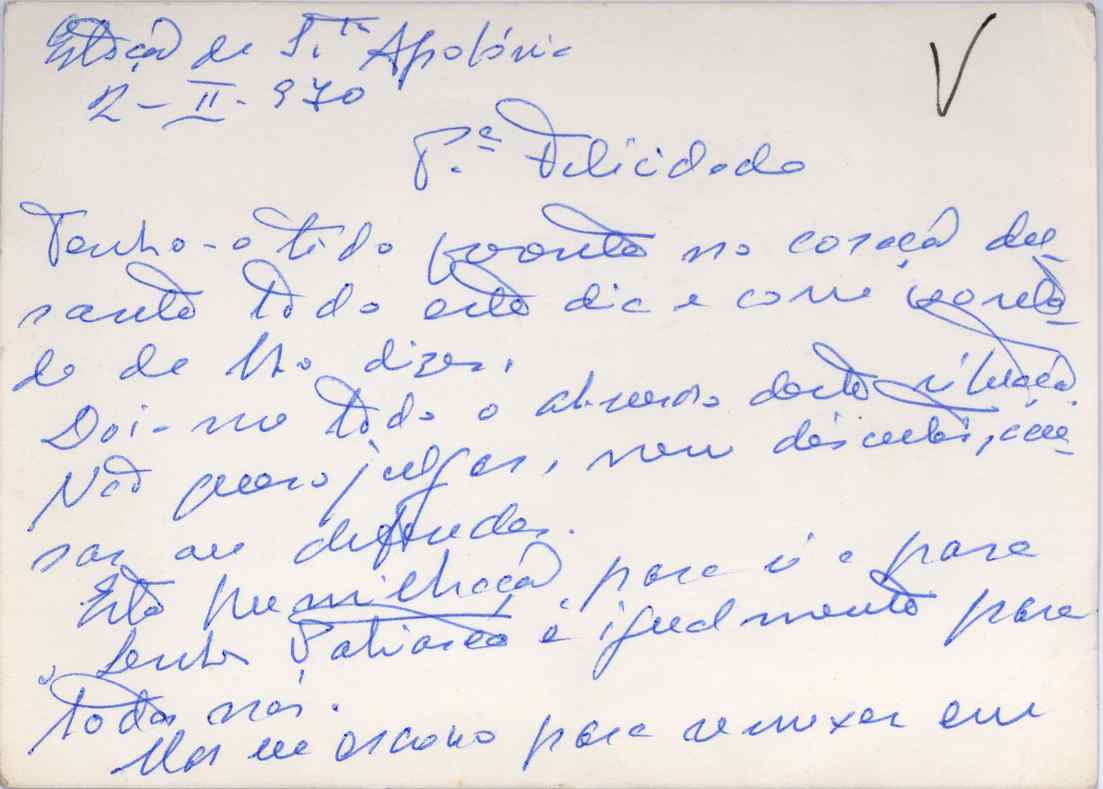 Estação de S.ta Apolónia
2-II-970
P.e Felicidade
Tenho-o tido presente no coração du-
rante todo este dia e com vonta-
de de lho dizer.
Doi-me todo o absurdo desta situação
Não quero julgar, nem desculpar, acu-
sar ou defender.
Esta humilhação para si e para
o Senhor Patriarca é igualmente para
todos nós.
Mas eu escrevo para remexer em